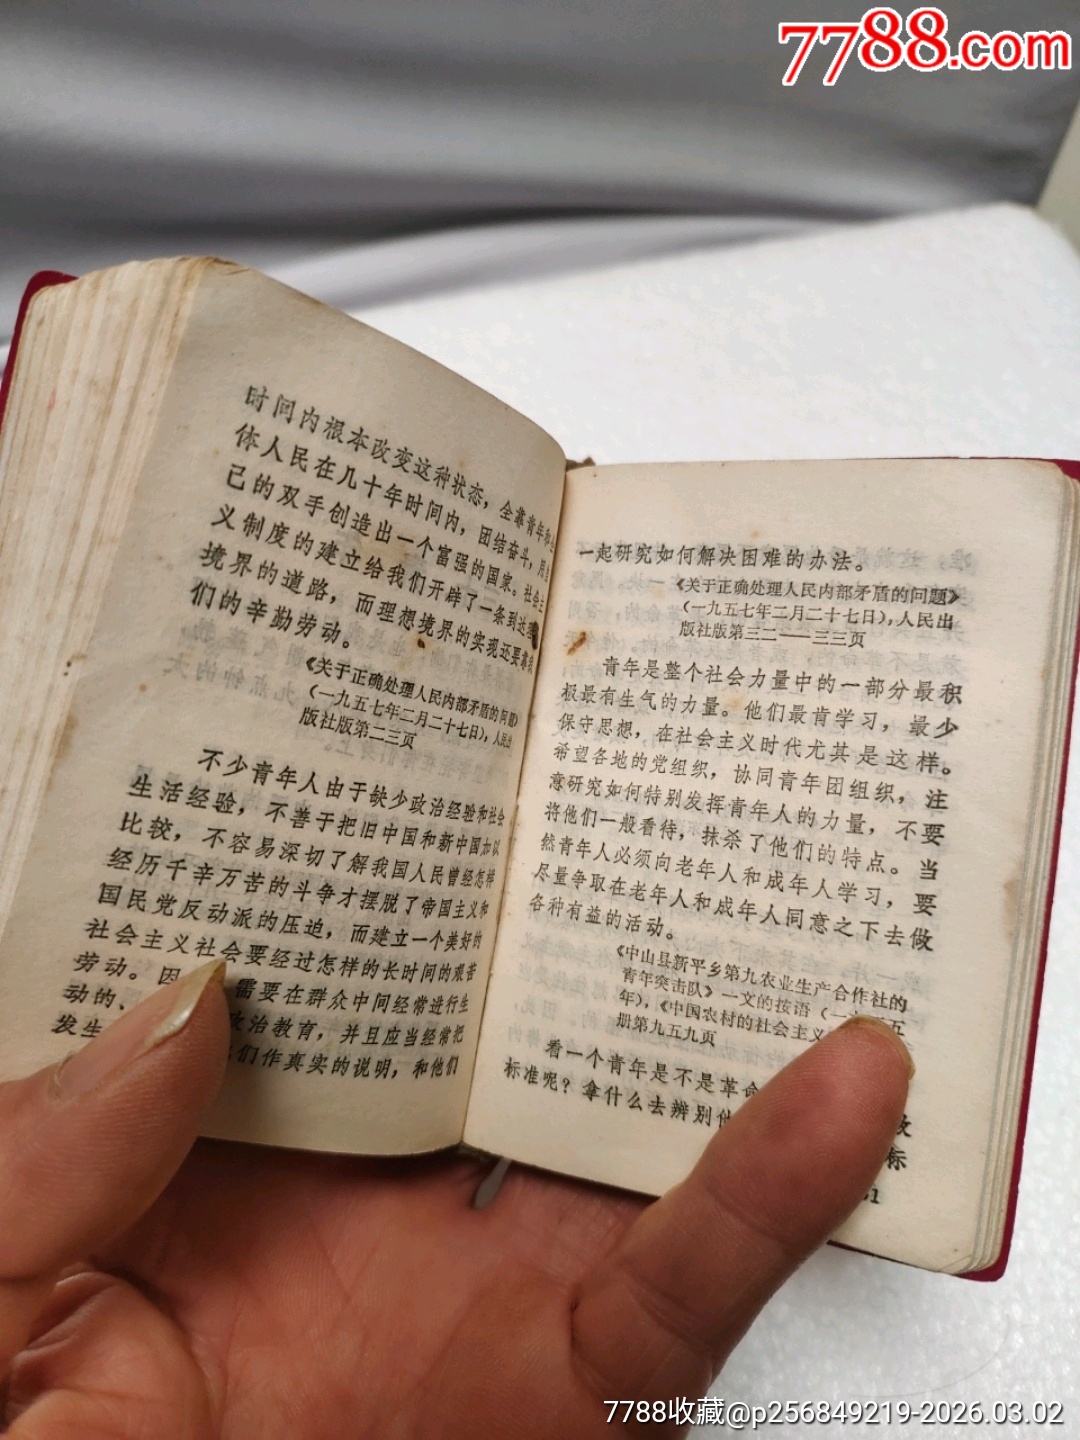 7788.com
时间内根本改变这种状态，全靠青年和
体人民在几十年时间内，团结奋斗，用
己的双手创造出一个富强的国家。社会主
义制度的建立给我们开辟了一条到达理
境界的道路，而理想境界的实现还要靠我
们的辛勤劳动。
《关于正确处理人民内部矛盾的问题》
（一九五七年二月二十七日），人民出
版社版第二三页
不少青年人由于缺少政治经验和社会
生活经验，不善于把旧中国和新中国加以
比较，不容易深切了解我国人民曾经怎样
经历千辛万苦的斗争才摆脱了帝国主义和
国民党反动派的压迫，而建立一个美好的
社会主义社会要经过怎样的长时间的艰苦
劳动。因 需要在群众中间经常进行生
动的、 政治教育，并且应当经常把
发生 们作真实的说明，和他们
一起研究如何解决困难的办法。
《关于正确处理人民内部矛盾的问题》
（一九五七年二月二十七日），人民出
版社版第三二——三三页
青年是整个社会力量中的一部分最积
极最有生气的力量。他们最肯学习，最少
保守思想，在社会主义时代尤其是这样。
希望各地的党组织，协同青年团组织，注
意研究如何特别发挥青年人的力量，不要
将他们一般看待，抹杀了他们的特点。当
然青年人必须向老年人和成年人学习，要
尽量争取在老年人和成年人同意之下去做
各种有益的活动。
《中山县新平乡第九农业生产合作社的
青年突击队》一文的按语（一九五五
年），《中国农村的社会主义
册第九五九页
看一个青年是不是革命
标准呢？拿什么去辨别他
标
7788收藏@p256849219-2026.03.02